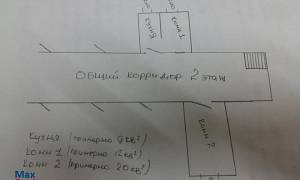 Кухня
Комн 1
Общий корридор 2 этаж
Комн 2
Кухня (примерно 9 кв²)
Комн 1 (примерно 12 кв²)
Комн 2 (примерно 20 кв²)
Max